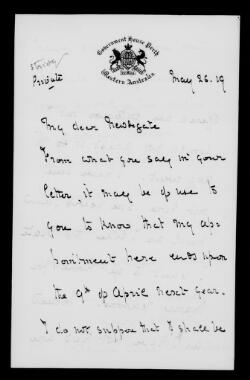 Government House Perth
Western Australia.
Strictly
Private
May 26. 19
My dear Newdegate
From what you say in your
letter it may be of use to
you to know that my ap-
pointment here ends upon
the 9th of April next year.
I do not suppose that I shall be